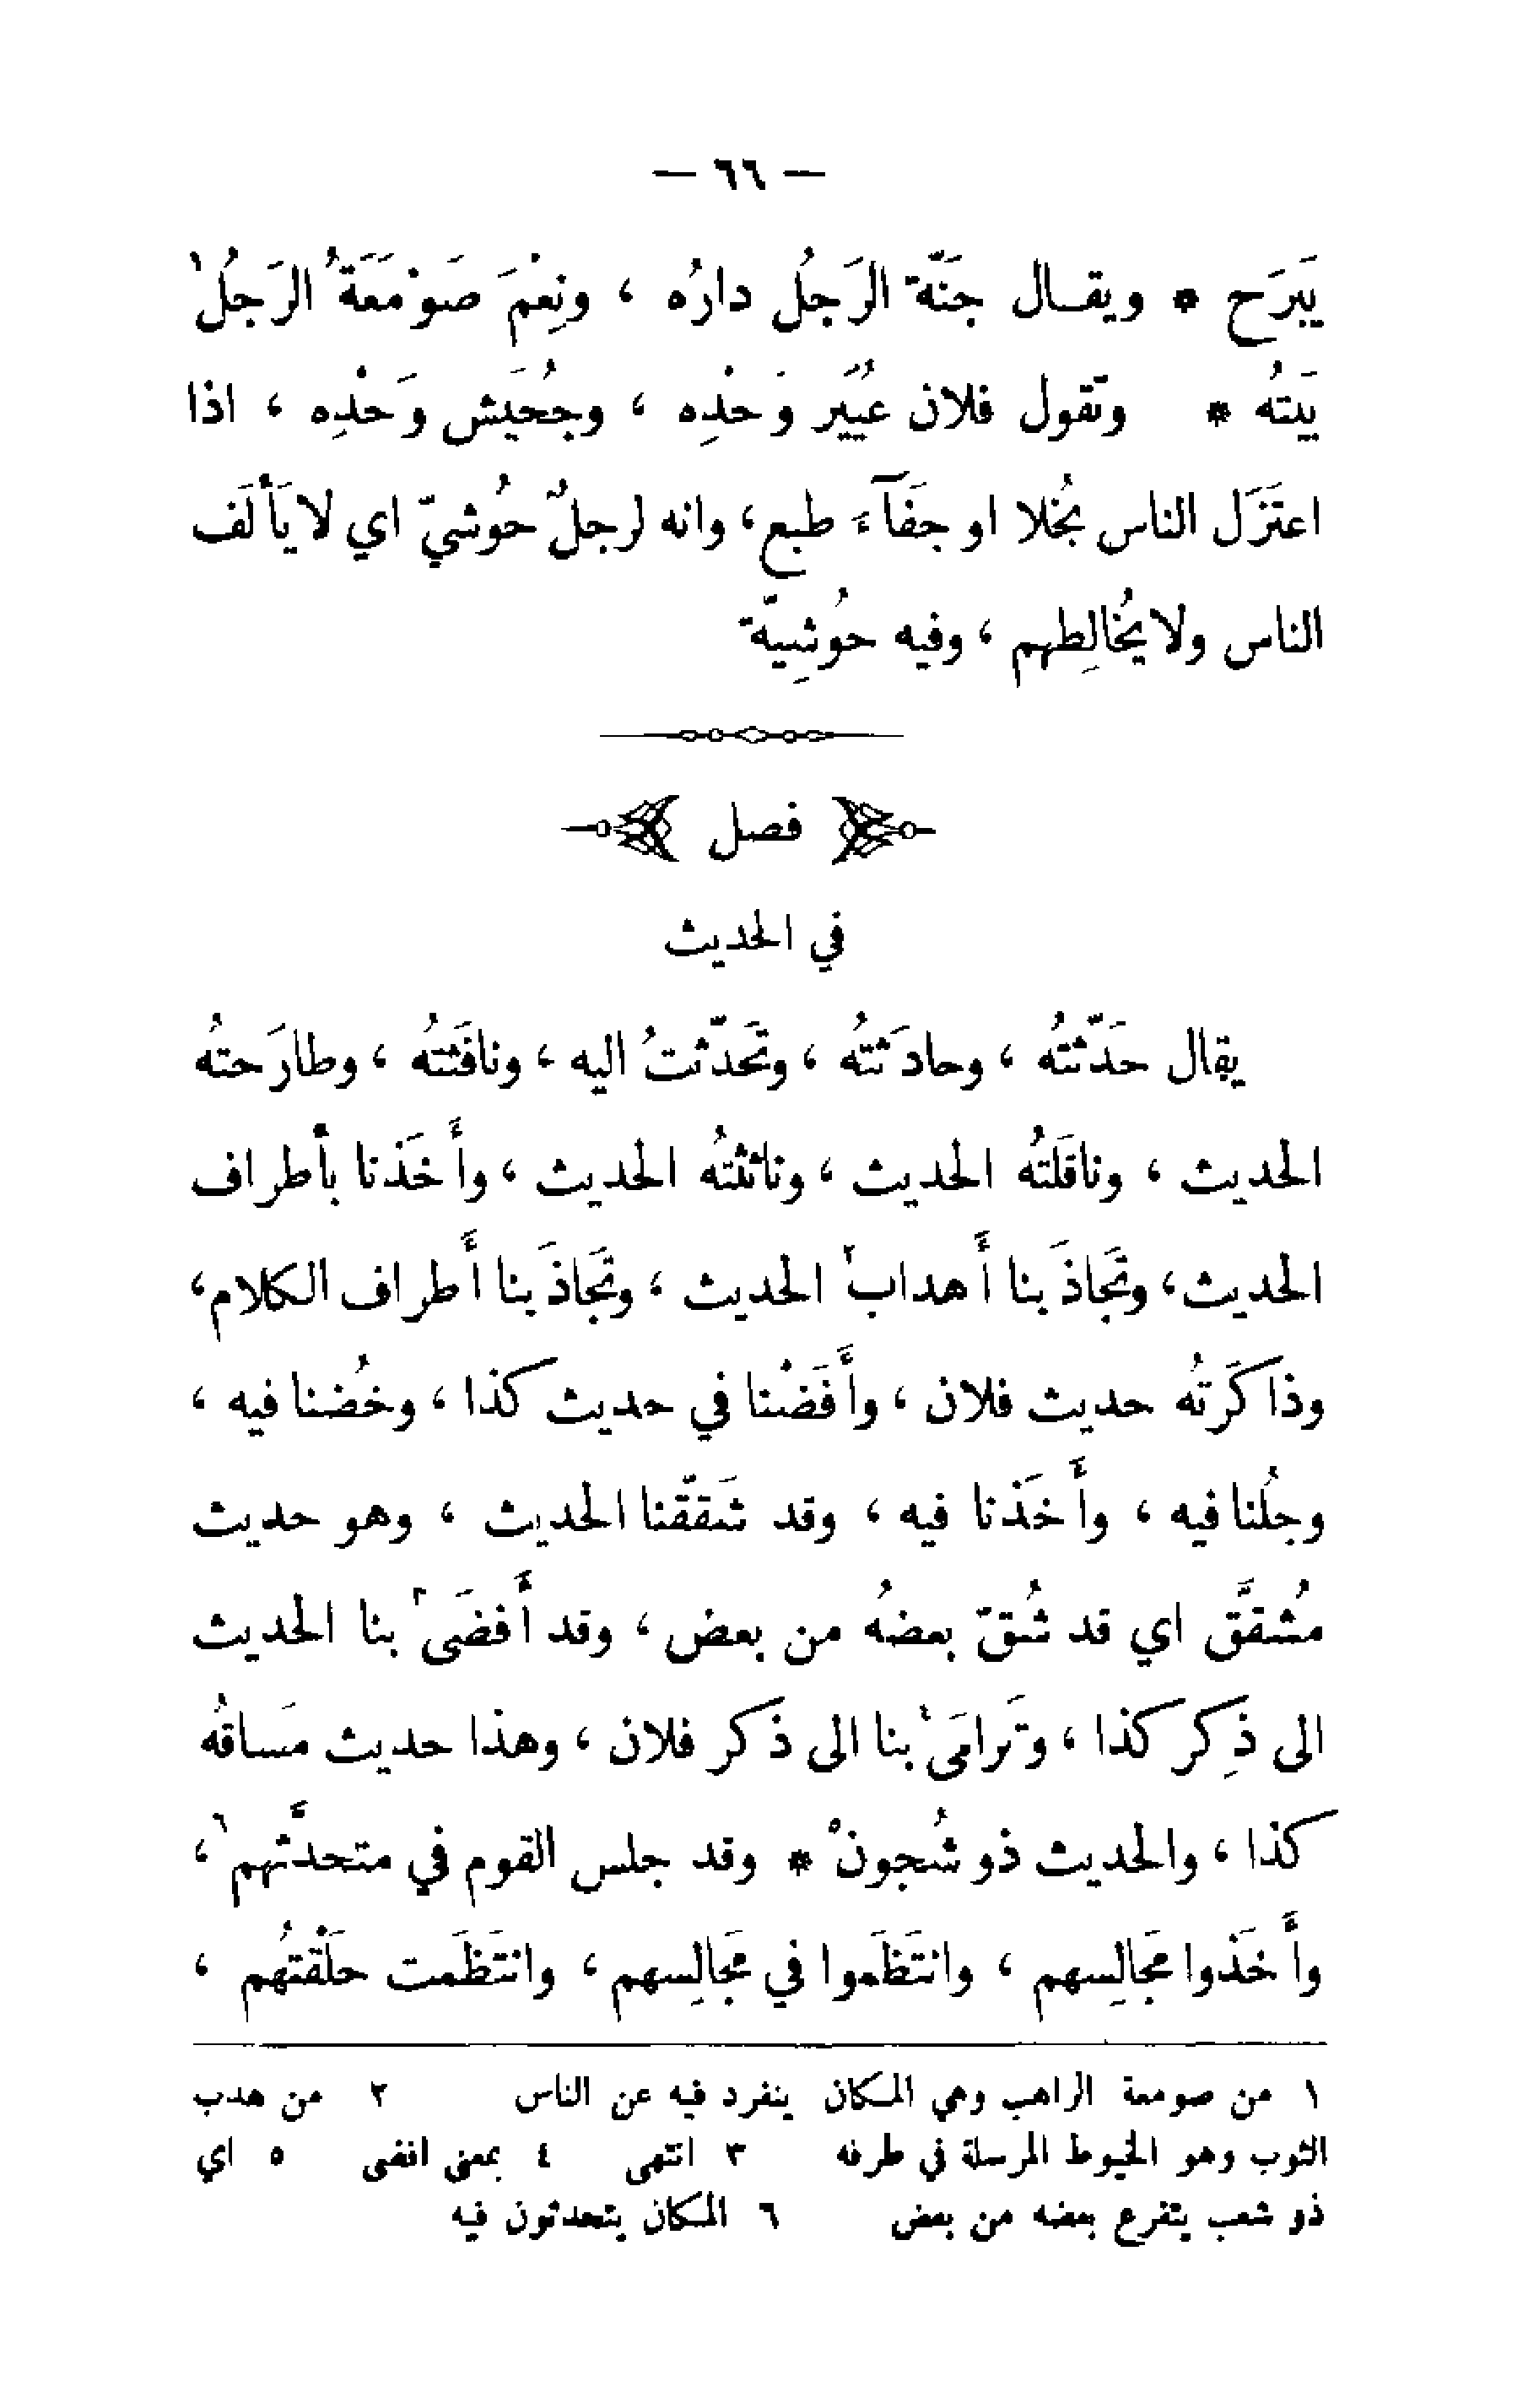 — ٦٦ —
يَبرَح * ويقـال جَنّة الرَجلُ دارُه ، ونِعْمَ صَوْمَعَةُ الرَجلُ١
بَيتهُ * وتقول فلان عُيَير وَحْدِه ، وجُحَيش وَحْدِه ، اذا
اعتَزَل الناس بُخلا او جَفَآءَ طبع ، وانه لرجلٌ حُوشيّ اي لا يَألَف
الناس ولا يُخالِطهم ، وفيه حُوشِيّة
فصل
في الحديث
يقال حَدّثتهُ ، وحادَثتهُ ، وتَحَدّثتُ اليه ، ونافَثتهُ ، وطارَحتهُ
الحديث ، وناقَلتهُ الحديث ، وناثثتهُ الحديث ، وأَخَذنا بأطراف
الحديث ، وتَجاذَبنا أَهداب٢ الحديث ، وتَجاذَبنا أَطراف الكلام ،
وذاكَرتهُ حديث فلان ، وأَفَضْنا في حديث كذا ، وخُضنا فيه ،
وجُلنا فيه ، وأَخَذنا فيه ، وقد شَقّقنا الحديث ، وهو حديث
مُشقَّق اي قد شُقّ بعضهُ من بعض ، وقد أَفضَى٣ بنا الحديث
الى ذِكر كذا ، وتَرامَى٤ بنا الى ذكر فلان ، وهذا حديث مَساقهُ
كذا ، والحديث ذو شُجون٥ * وقد جلس القوم في متحدَّثهم٦ ،
وأَخَذوا مَجَالِسهم ، وانتَظَموا في مَجَالِسهم ، وانتَظَمت حَلْقتهُم ،
١ من صومعة الراهب وهي المكان ينفرد فيه عن الناس ٢ من هدب
الثوب وهو الخيوط المرسلة في طرفه ٣ انتهى ٤ بمعنى افضى ٥ اي
ذو شعب يتفرع بعضه من بعض ٦ المكان يتحدثون فيه